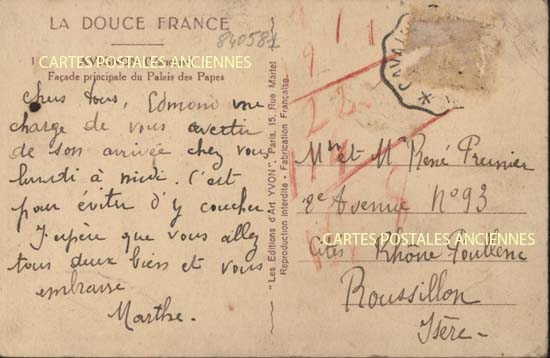 LA DOUCE FRANCE
840581
CARTES POSTALES ANCIENNES
Façade principale du Palais des Papes
Chers tous, Edmond me
charge de vous avertir
de son arrivée chez vous
lundi à midi. C'est
pour éviter d'y coucher.
J'espère que vous allez
tous deux bien et vous
embrasse
Marthe.
"Les Editions d'Art "YVON", Paris, 15, Rue Martel
Reproduction Interdite - Fabrication Française.
CAVAI
Mr et Me René Prunier
2e Avenue N°93
CARTES POSTALES ANCIENNES
Cités Rhône Poulenc
Roussillon
Isère-